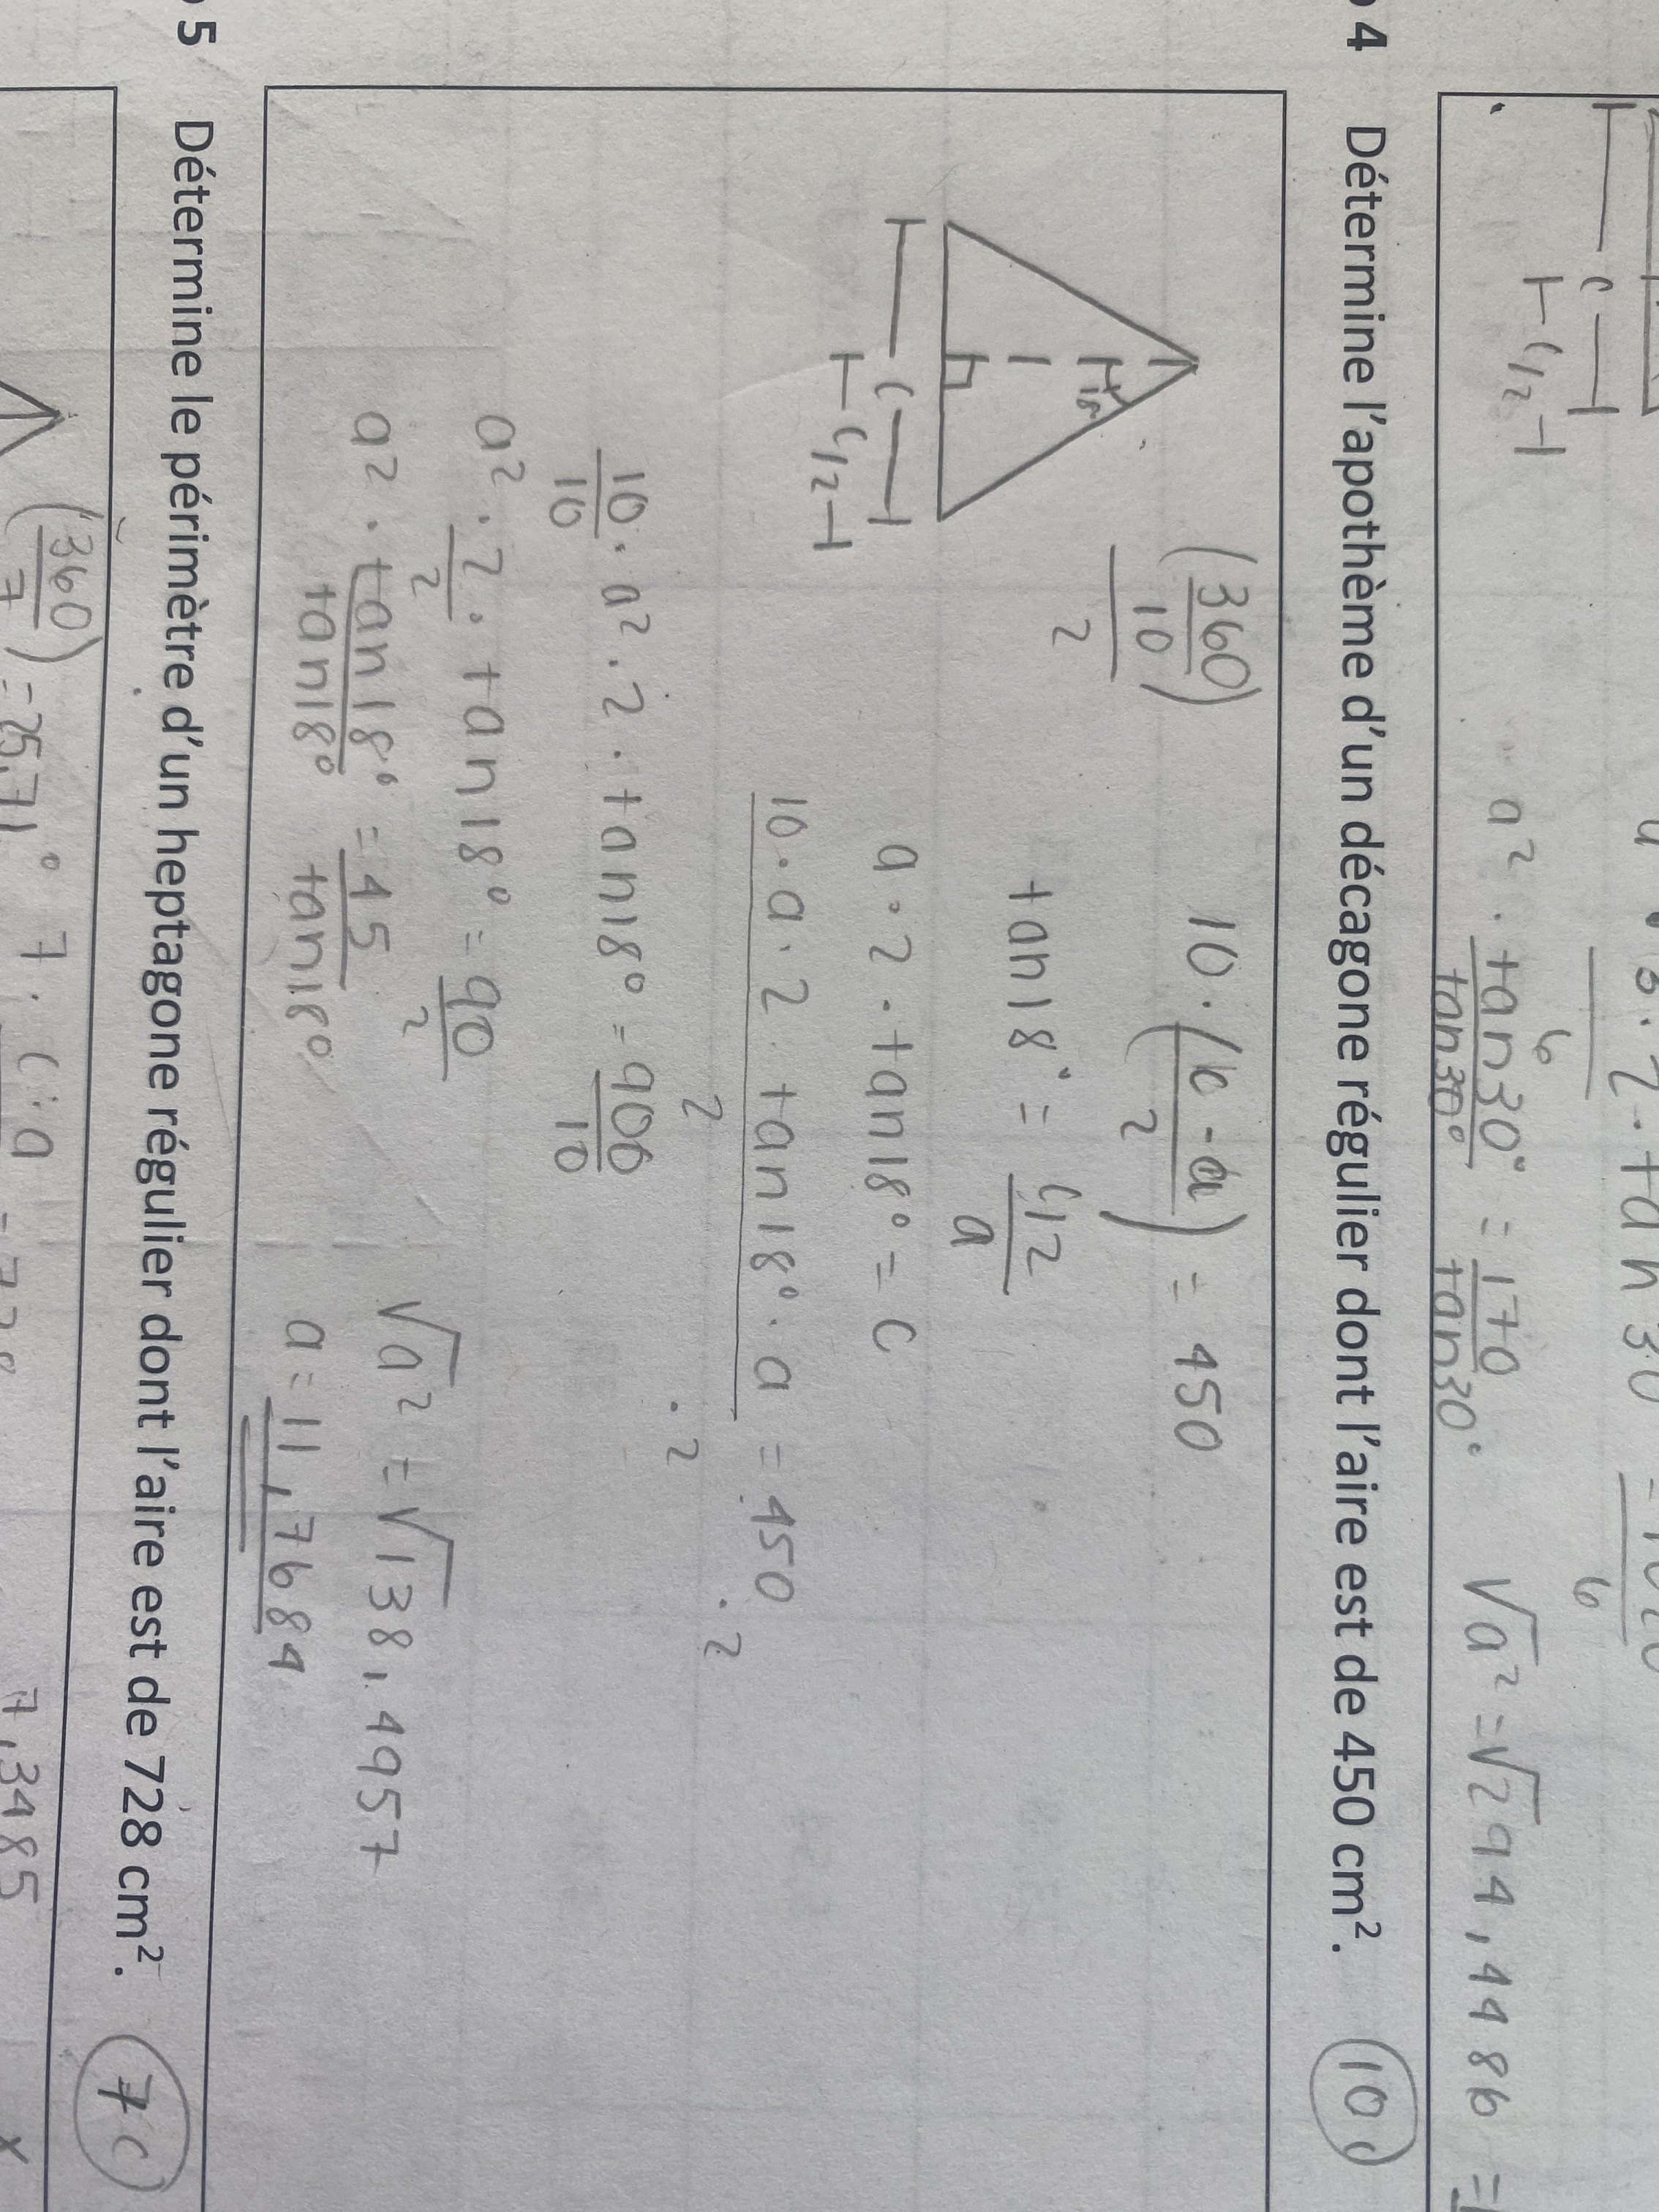 c
c/2
a² · tan30° / tan30° = 170 / tan30°
√a² = √294,4486 =
6
6
4 Détermine l'apothème d'un décagone régulier dont l'aire est de 450 cm².
10c
(360/10)
2
10 · (b · a / 2) = 450
18
tan18° = c/2 / a
c
c/2
a · 2 · tan18° = c
10 · a · 2 · tan18° · a = 450 · 2
2 · 2
10/10 · a² · 2 · tan18° = 900/10
a² · 2/2 · tan18° = 90/2
a² · tan18°/tan18° = 45/tan18°
√a² = √138,4957
a = 11,7684
5 Détermine le périmètre d'un heptagone régulier dont l'aire est de 728 cm².
7c
(360/7) = 25,71°
7 · c · a = 728
7,3485